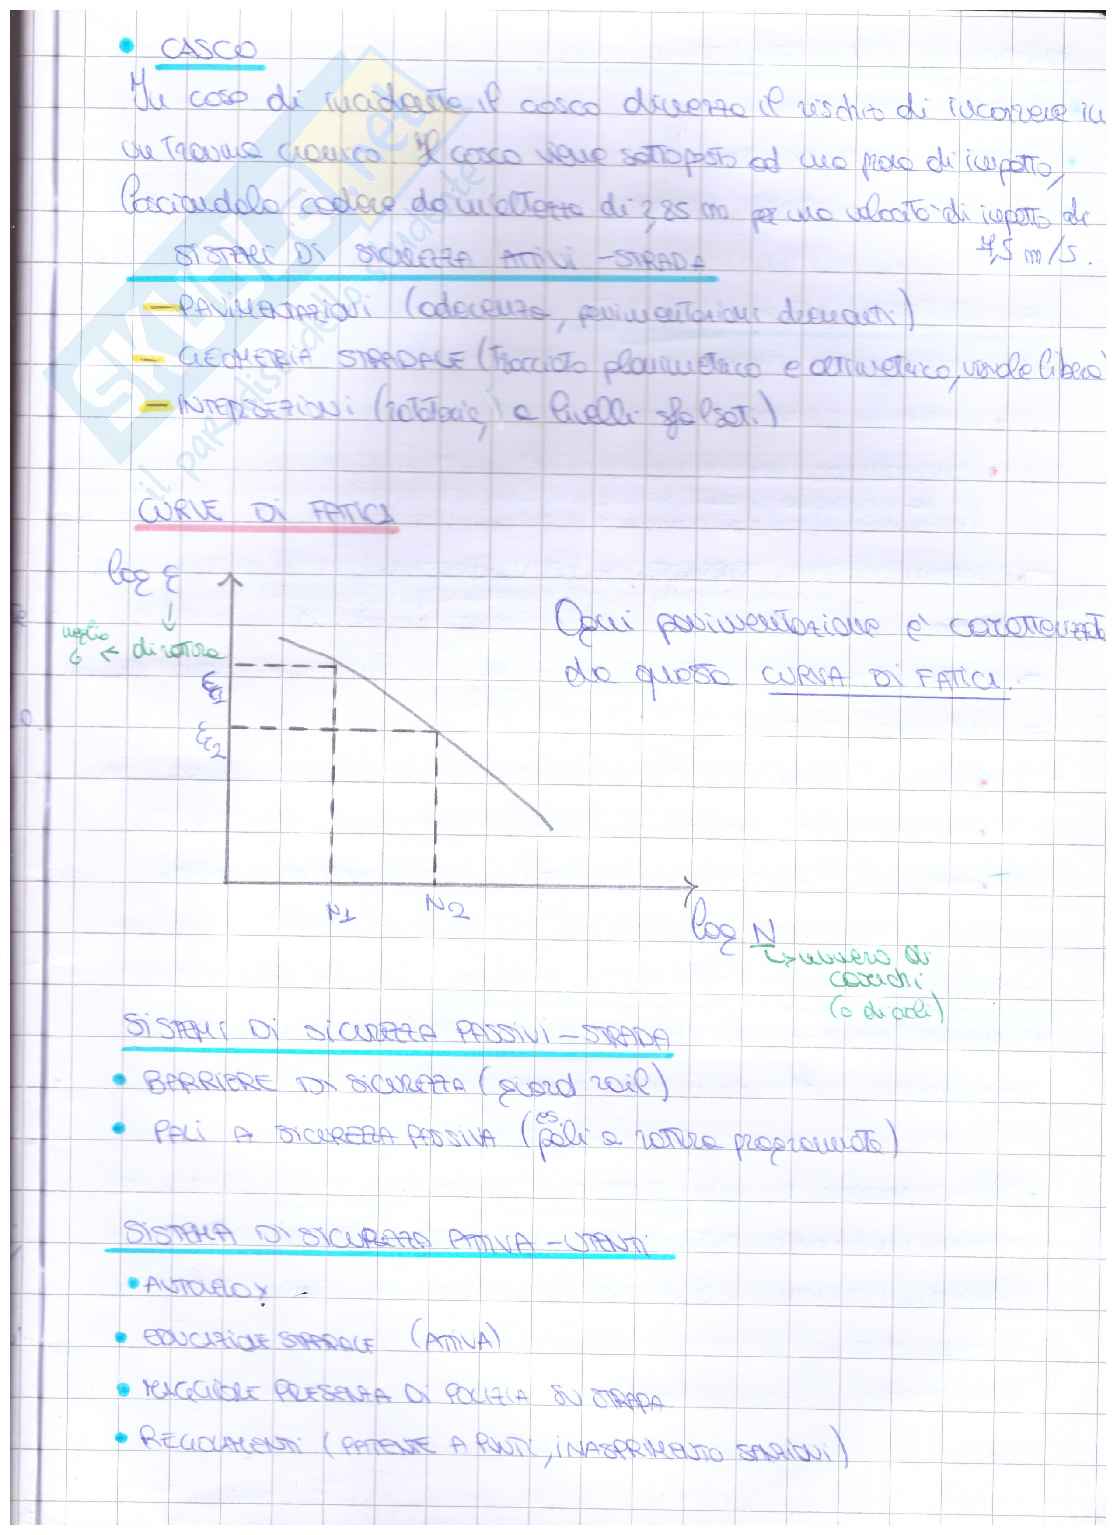 • CASCO
In caso di incidente il casco diminuisce il rischio di incorrere in
un trauma cranico. Il casco viene sottoposto ad una prova di impatto,
lasciandolo cadere da un'altezza di 2,85 m per una velocità di impatto di
7,5 m/s.
SISTEMI DI SICUREZZA ATTIVI - STRADA
- PAVIMENTAZIONI (aderenza, pavimentazioni drenanti)
- GEOMETRIA STRADALE (tracciato planimetrico e altimetrico, visuale libera)
- INTERSEZIONI (rotatorie, a livelli sfalsati)
CURVE DI FATICA
log ε
↓
di rottura
meglio
σ ←
ε1
ε2
Ogni pavimentazione è caratterizzata
da questa CURVA DI FATICA.
N1
N2
log N
↳ numero di
carichi
(o di cicli)
SISTEMI DI SICUREZZA PASSIVI - STRADA
• BARRIERE DI SICUREZZA (guard rail)
• PALI A SICUREZZA PASSIVA (es. pali a rottura programmata)
SISTEMA DI SICUREZZA ATTIVA - UTENTI
• AUTOVELOX
• EDUCAZIONE STRADALE (ATTIVA)
• MAGGIORE PRESENZA DI POLIZIA SU STRADA
• REGOLAMENTI (PATENTE A PUNTI, INASPRIMENTO SANZIONI)
SKUOLA.net
il paradiso dello studente